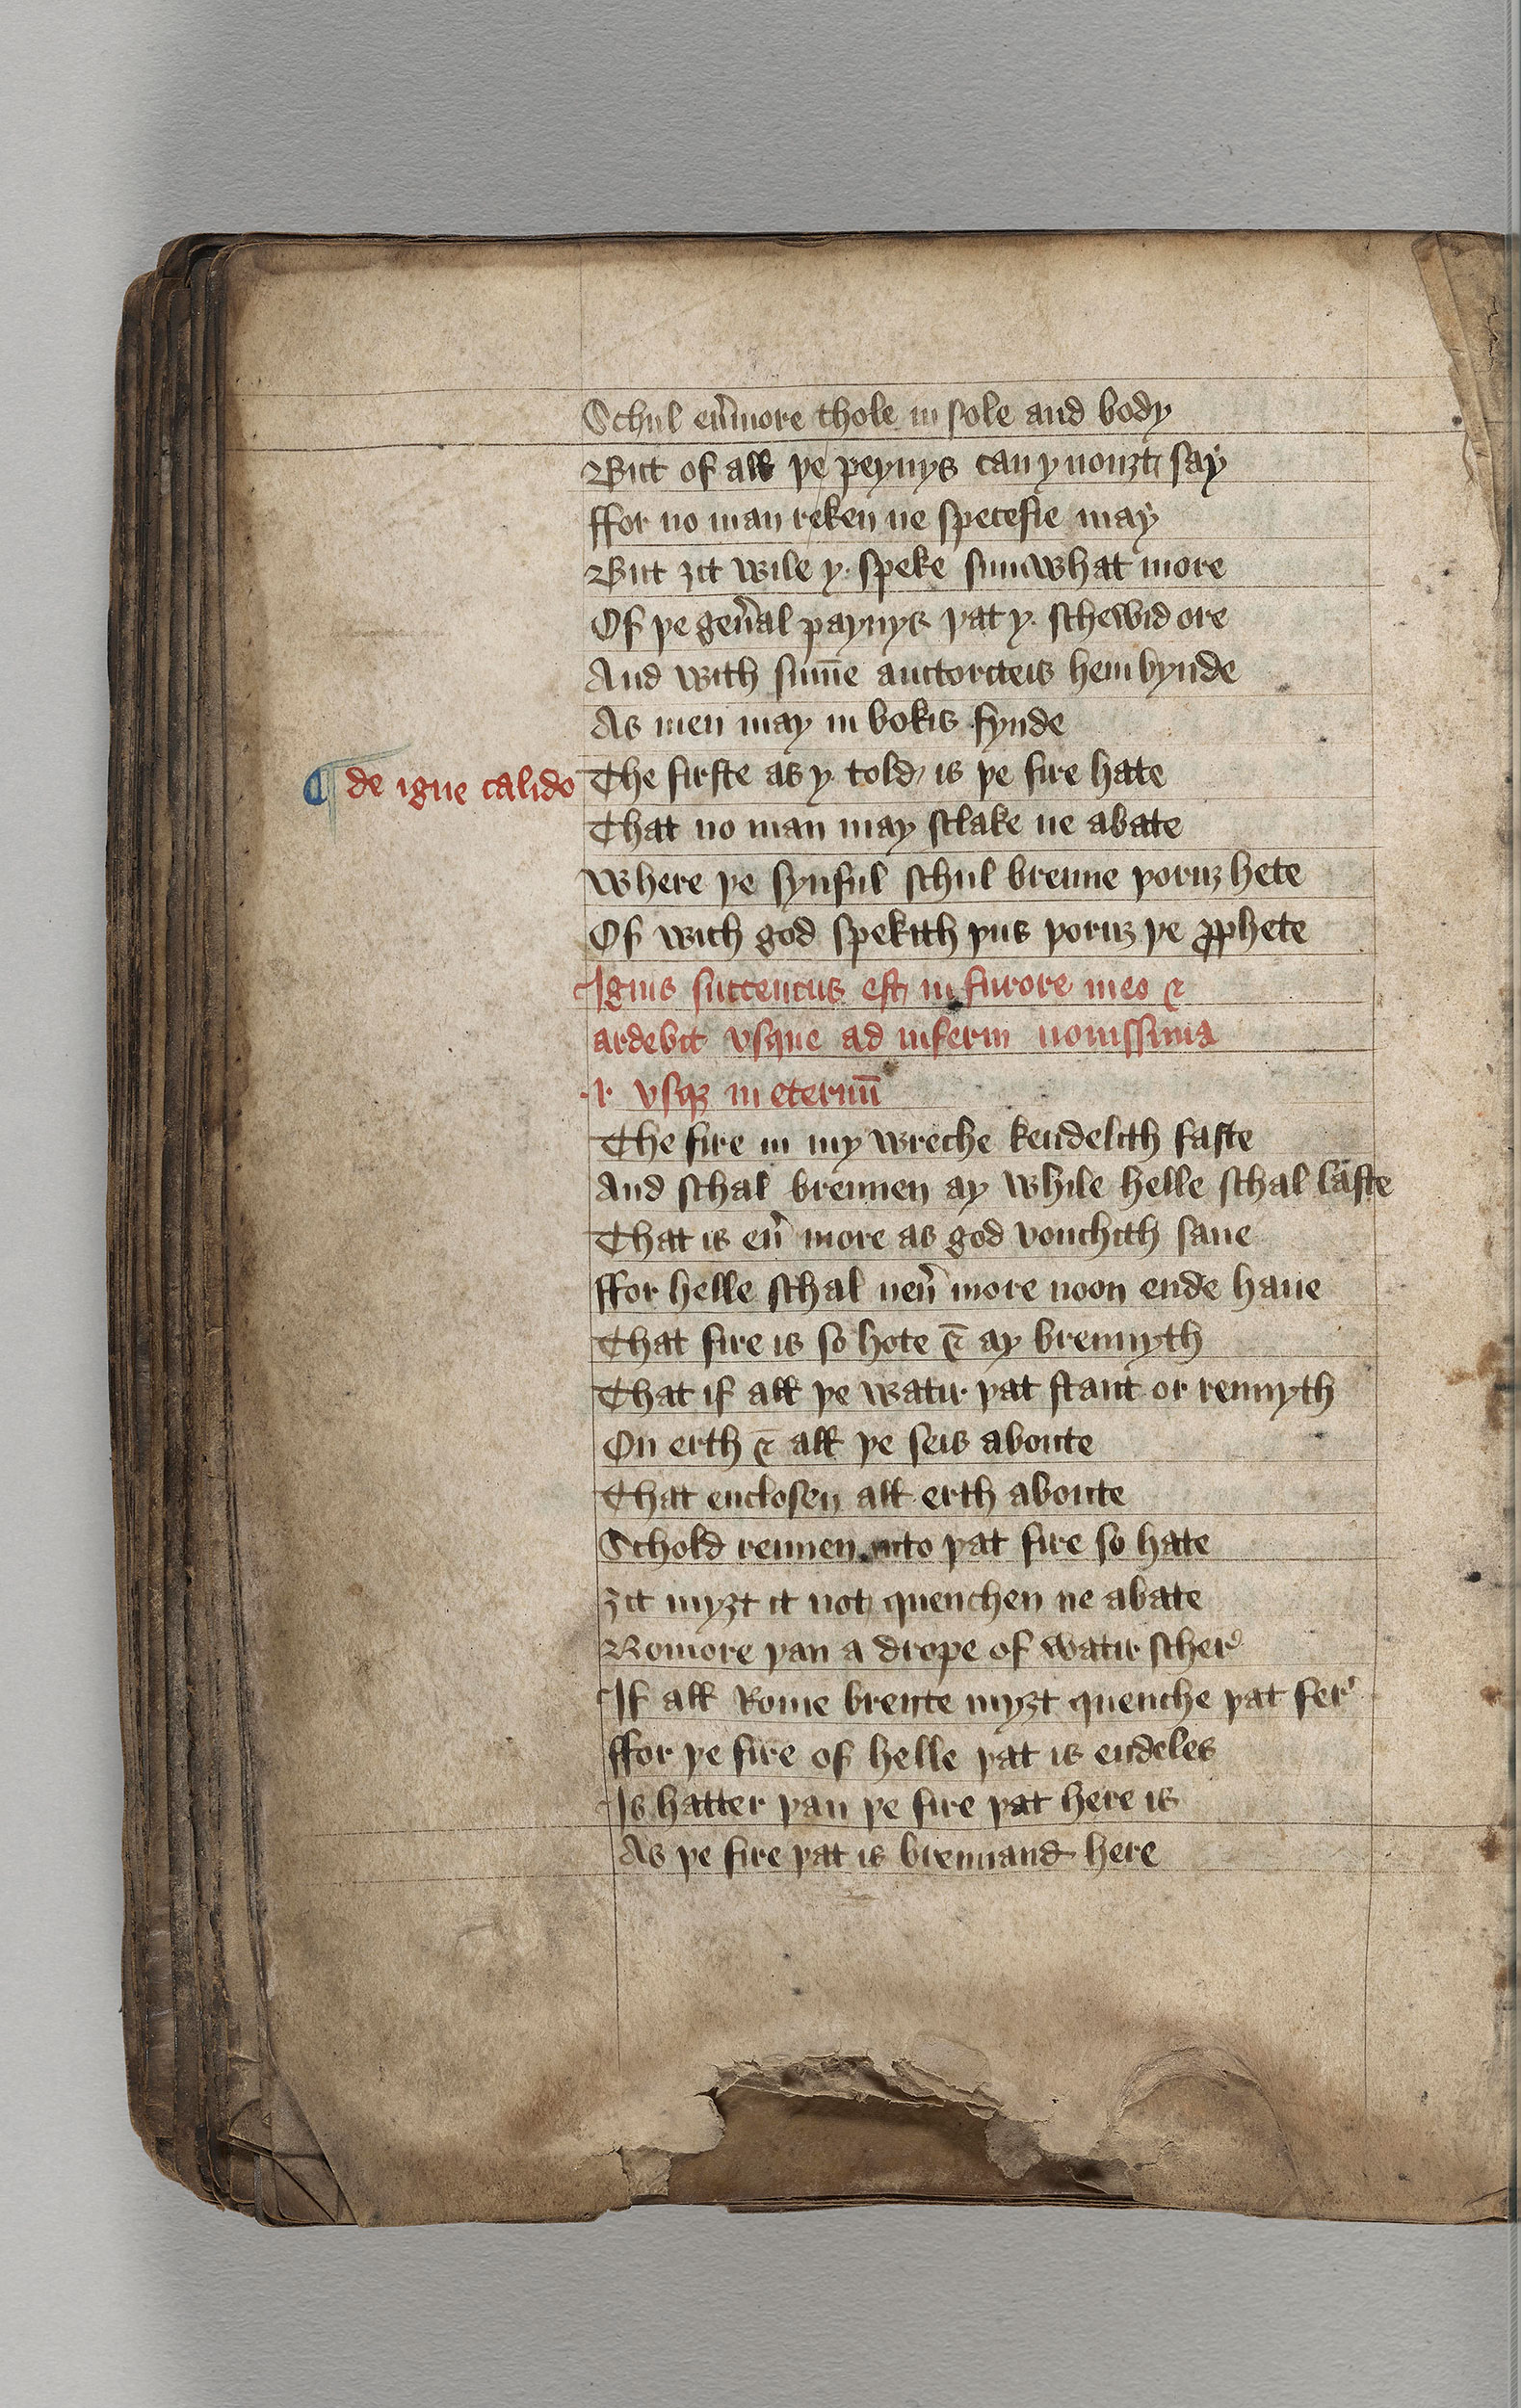 Schul eu̾more thole in sole and body
But of all þe peynys can y nouȝt say
ffor no man reken ne specefie may
But ȝit wile y. speke sumwhat more
Of þe gen̾al paynys þat y. schewid ore
And with sum̄e auctoriteis hem bynde
As men may in bokis fynde
¶ de igne calido
The firste as y. told is þe fire hate
That no man may sclake ne abate
Where þe synful schul brenne þoruȝ hete
Of wich god spekith þus þoruȝ þe ꝓphete
Ignis succencus est in furore meo ⁊
ardebit vsque ad inferni nouissima
.i. vsqꝫ in eternū
The fire in my wreche kendelith faste
And schal brennen ay while helle schal laste
That is eu̾ more as god vouchith saue
ffor helle schal neu̾ more noon ende haue
That fire is so hote ⁊ ay brennyth
That if all þe watir þat stant or rennyth
On erth ⁊ all þe seis aboute
That enclosen all erth aboute
Schold rennen into þat fire so hate
ȝit myȝt it not quenchen ne abate
Nomore þan a drope of watir scher̾
If all Rome brente myȝt quenche þat fer̾
ffor þe fire of helle þat is endeles
Is hatter þan þe fire þat here is
As þe fire þat is brennand here